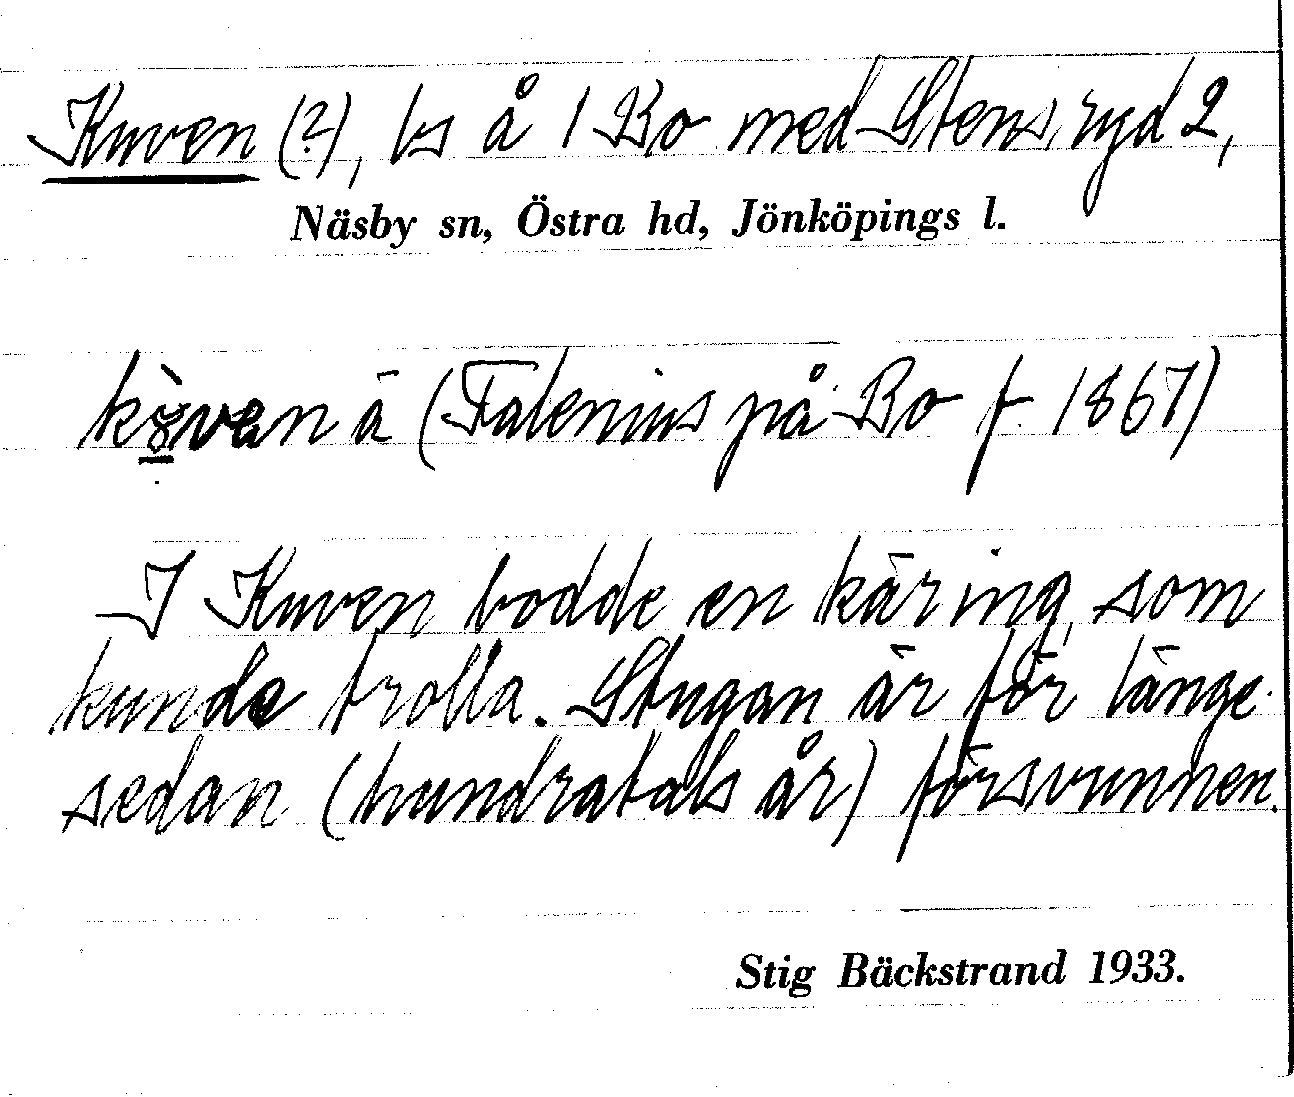 Kuven (?), bs å 1 Bo med Stensryd 2,
Näsby sn, Östra hd, Jönköpings l.
ä (Falenius på Bo f. 1867)
I Kuven bodde en käring, som
kunde trolla. Stugan är för länge
sedan (hundratals år) försvunnen.
Stig Bäckstrand 1933.